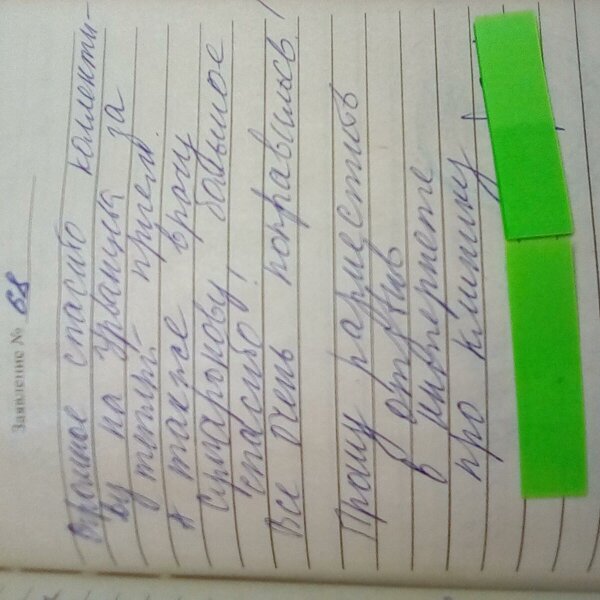 Заявление № 68
Огромное спасибо коллекти-
ву на Урванцева за
приём.
А также врачу
большое
спасибо!
Все очень понравилось!
Прошу разместить
отзыв
в интернете
про клинику